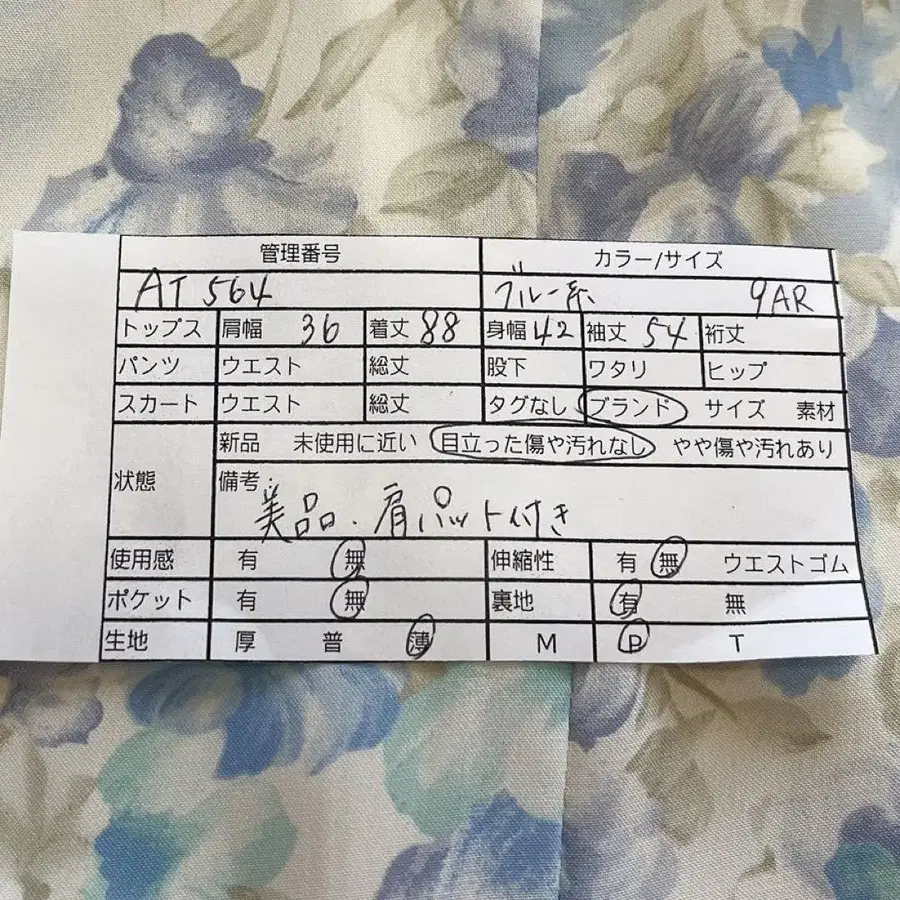 管理番号 カラー/サイズ
AT 564 ブルー系 9AR
トップス 肩幅 36 着丈 88 身幅 42 袖丈 54 裄丈
パンツ ウエスト 総丈 股下 ワタリ ヒップ
スカート ウエスト 総丈 タグなし ブランド サイズ 素材
状態 新品 未使用に近い 目立った傷や汚れなし やや傷や汚れあり
備考
美品.肩パット付き
使用感 有 無 伸縮性 有 無 ウエストゴム
ポケット 有 無 裏地 有 無
生地 厚 普 薄 M P T